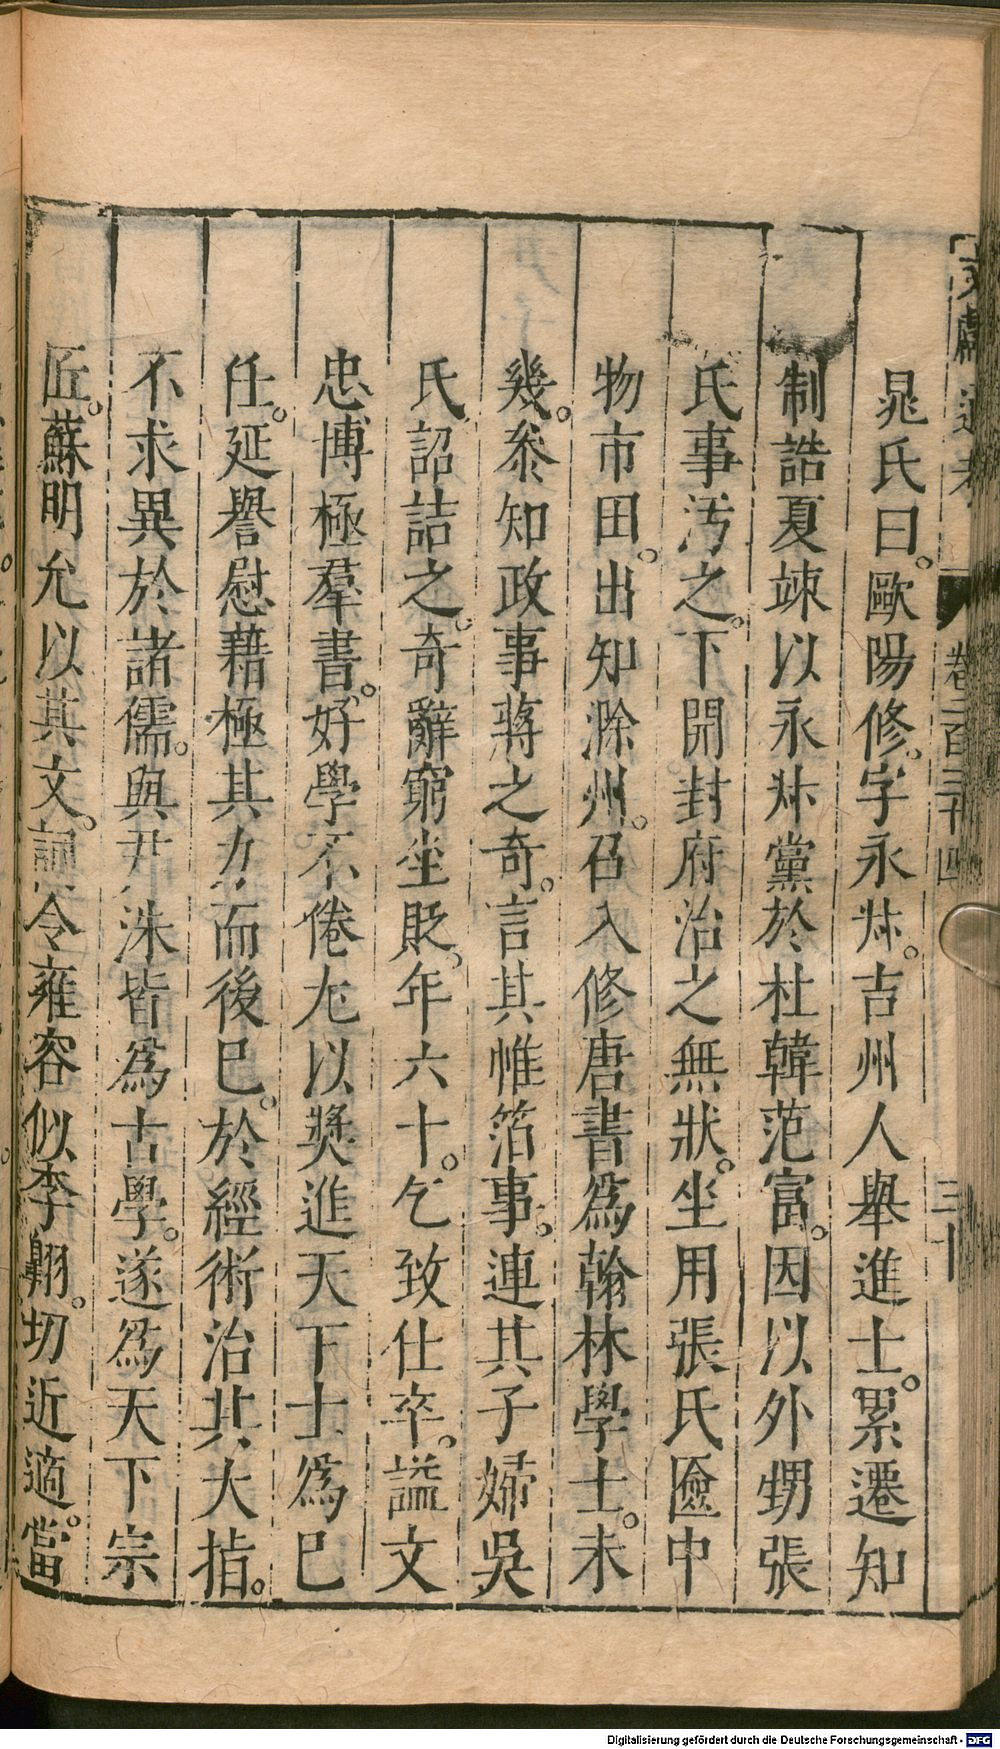 文獻通考 卷二百三十四 三十
晁氏曰。歐陽修。字永叔。吉州人舉進士。累遷知
制誥夏竦以永叔黨於杜韓范富。因以外甥張
氏事汚之。下開封府治之無狀。坐用張氏匳中
物市田。出知滁州。召入修唐書爲翰林學士。未
幾。叅知政事蔣之奇。言其帷箔事。連其子婦吳
氏詔詰之。奇辭窮坐貶。年六十。乞致仕卒。諡文
忠博極羣書。好學不倦尤以奬進天下士爲已
任。延譽慰藉極其力而後已。於經術治其大指。
不求異於諸儒。與尹洙皆爲古學。遂爲天下宗
匠。蘇明允以其文。詞令雍容似李翺。切近適。當
Digitalisierung gefördert durch die Deutsche Forschungsgemeinschaft - DFG